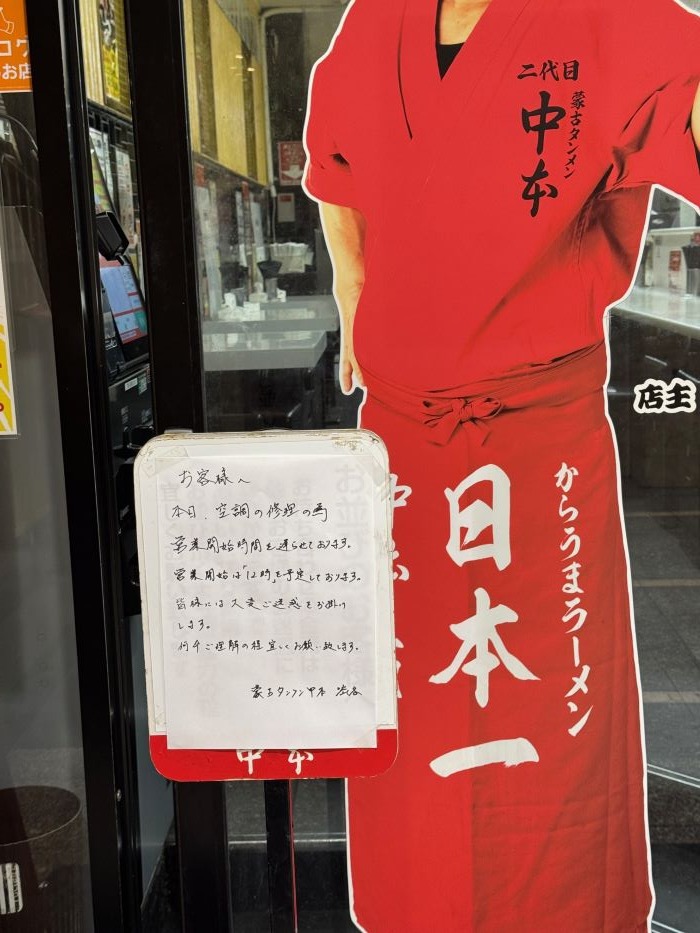 二代目
蒙古タンメン
中本
店主
からうまラーメン
日本一
お客様へ
本日、空調の修理の為
営業開始時間を遅らせております。
営業開始は「12時」を予定しております。
皆様には大変ご迷惑をお掛け
します。
何卒ご理解の程宜しくお願い致します。
蒙古タンメン中本 渋谷
中本